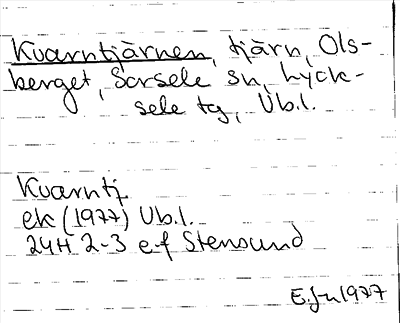 Kvarntjärnen, tjärn, Ols-
berget, Sorsele sn, Lyck-
sele tg, Vb.l.
Kvarntj.
ek (1977) Vb.l.
24H 2-3 e-f Stensund
E.Jn 1977